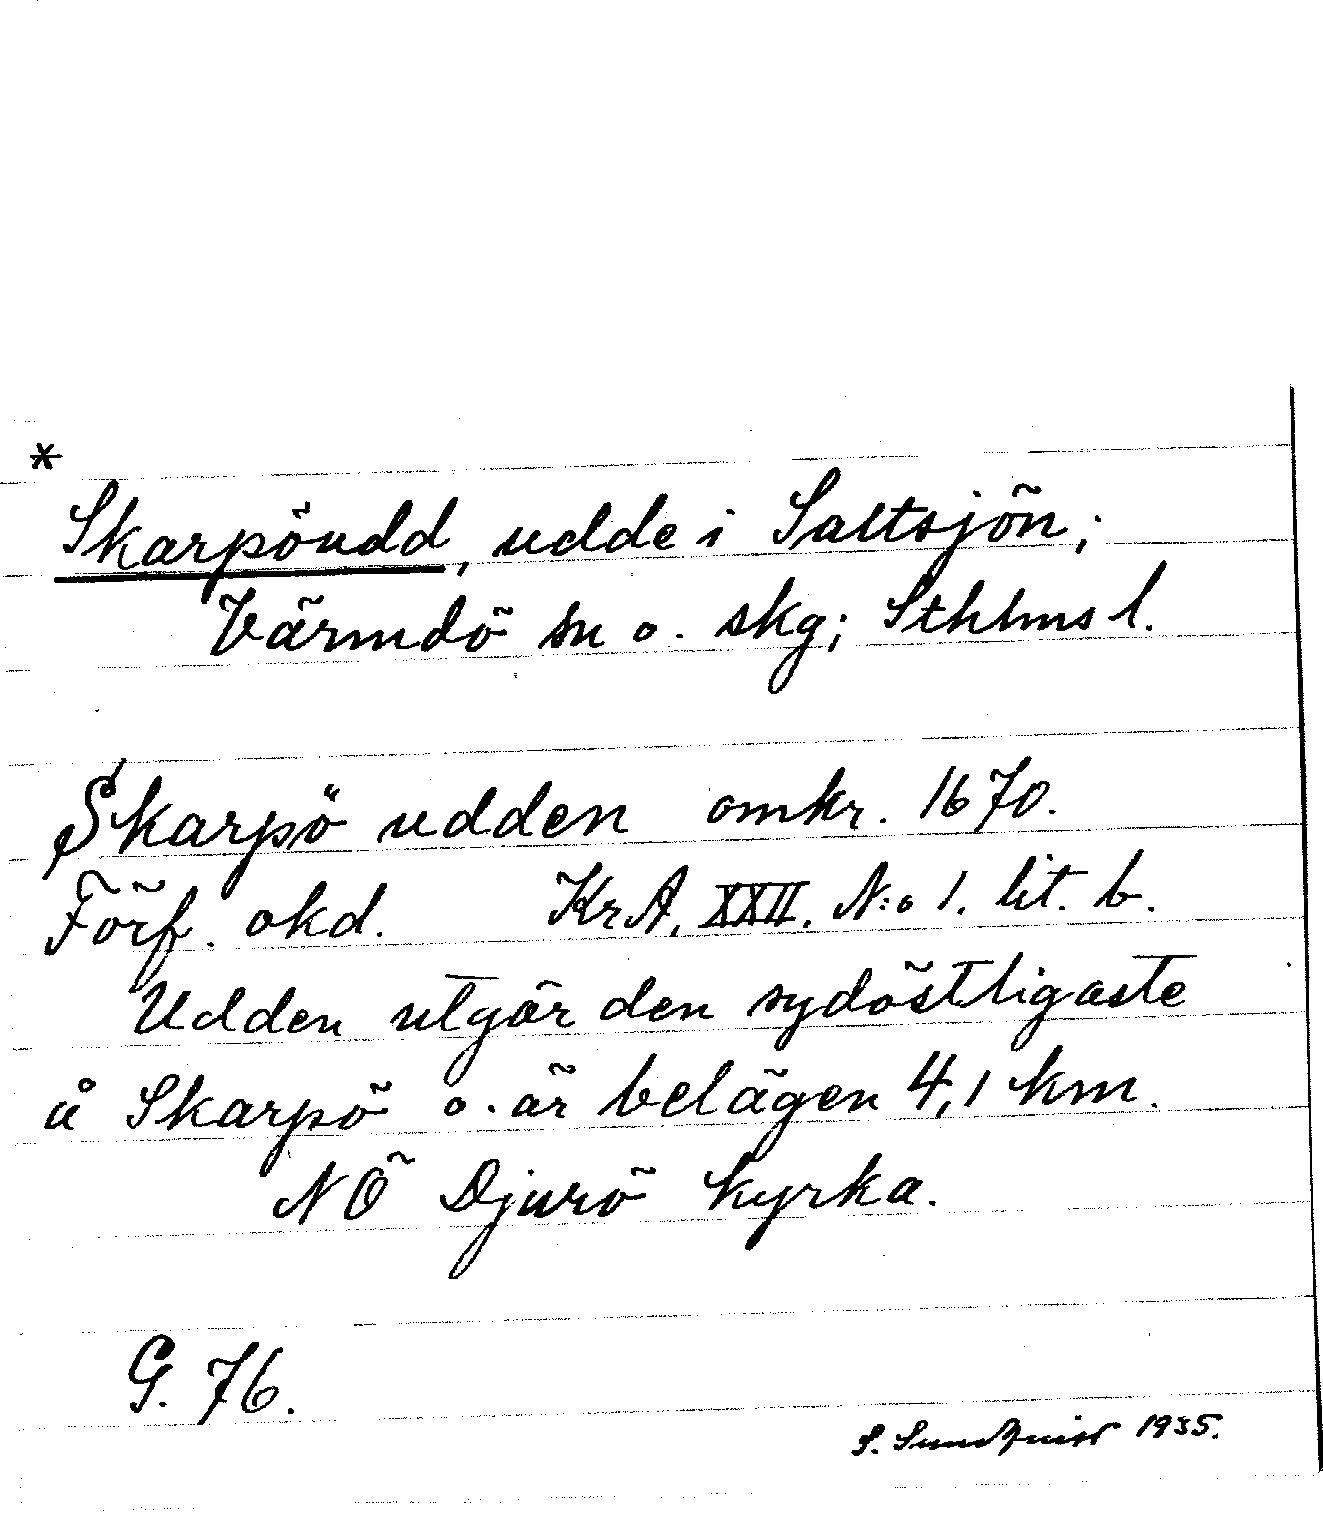 *
Skarpöudd, udde i Saltsjön;
Värmdö sn o. skg; Sthlms l.
Skarpö udden omkr. 1670.
Förf. okd. KrA, XXII. N:o 1. lit. b.
Udden utgör den sydöstligaste
å Skarpö o. är belägen 4,1 km.
NÖ Djurö kyrka.
G. 76.
S. Sundquist 1935.